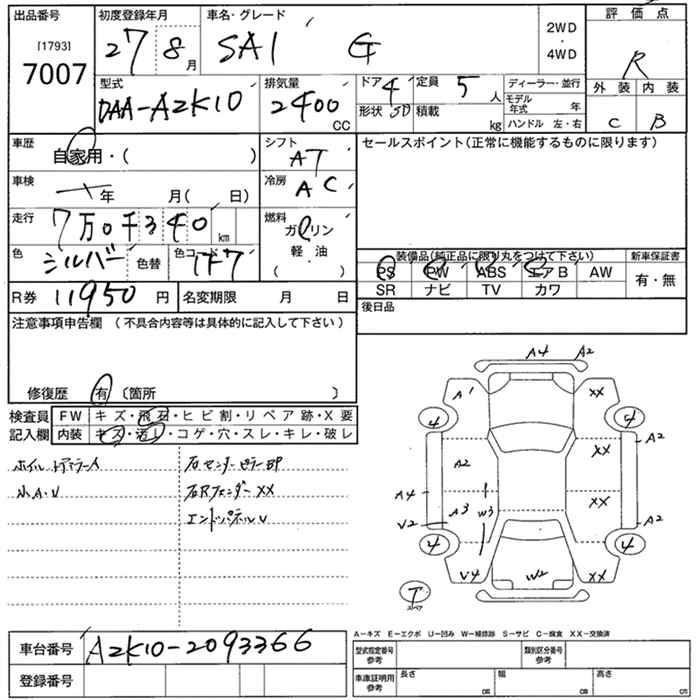 出品番号
[1793]
7007
初度登録年月
27 8月
車名・グレード
SAI G
2WD
・
4WD
評価点
R
外装 内装
C B
型式
DAA-AZK10
排気量
2400 CC
ドア 4
形状 SD
定員 5人
積載 kg
ディーラー・並行
モデル年式 年
ハンドル 左・右
車歴
自家用・( )
シフト
AT
セールスポイント(正常に機能するものに限ります)
車検
年 月( 日)
冷房
AC
走行
7万0千340 km
燃料
ガソリン
軽・油
( )
色
シルバー
色替
色コード
1F7
装備品(純正品に限り丸をつけて下さい)
新車保証書
PS PW ABS エアB AW
SR ナビ TV カワ
有・無
R券 11950円
名変期限 月 日
後日品
注意事項申告欄 (不具合内容等は具体的に記入して下さい)
修復歴 有 〔箇所 〕
検査員
記入欄
FW キズ・飛石・ヒビ割・リペア跡・X要
内装 キズ・汚レ・コゲ・穴・スレ・キレ・破レ
小A・V
右センターピラーBP
右Rフェンダー XX
エンドパネルV
A4 A2
A1 XX
4 4
A2 XX A2
A4 A3 W3 XX
V2 A2
4 4
V4 W2 XX
T
スペア
A−キズ E−エクボ U−凹み W−補修跡 S−サビ C−腐食 XX−交換済
車台番号 AZK10-2093366
登録番号
型式指定番号
参考
類別区分番号
参考
車庫証明用
参考
長さ cm 幅 cm 高さ cm